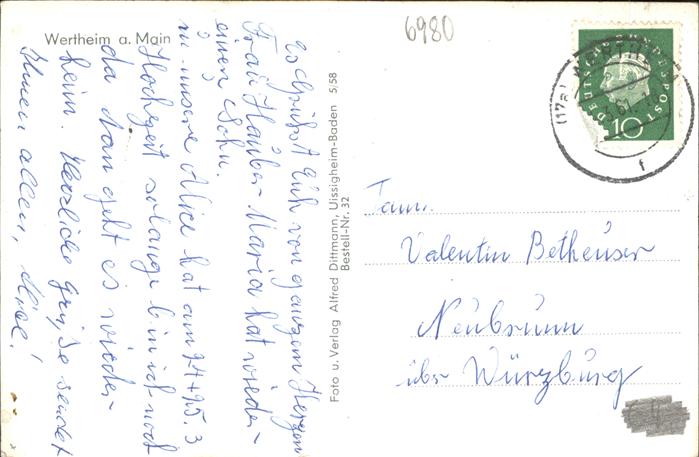 Wertheim a. Main
6980
Es grüßst Euch von ganzem Herzen
Frau Häuber Maria hat wieder
einen Sohn.
zu unsere Alice hat am 24+25.3
Hochzeit solange bin ich noch
da dan geht es wieder
heim. Herzliche Grüße sendet
Ihnen allen,
Foto u. Verlag Alfred Dittmann, Uissigheim-Baden 5/58
Bestell-Nr. 32
DEUTSCHE BUNDESPOST
10
(17a) WERTHEIM
61
f
Fam.
Valentin Betheuser
Neubrunn
über Würzburg